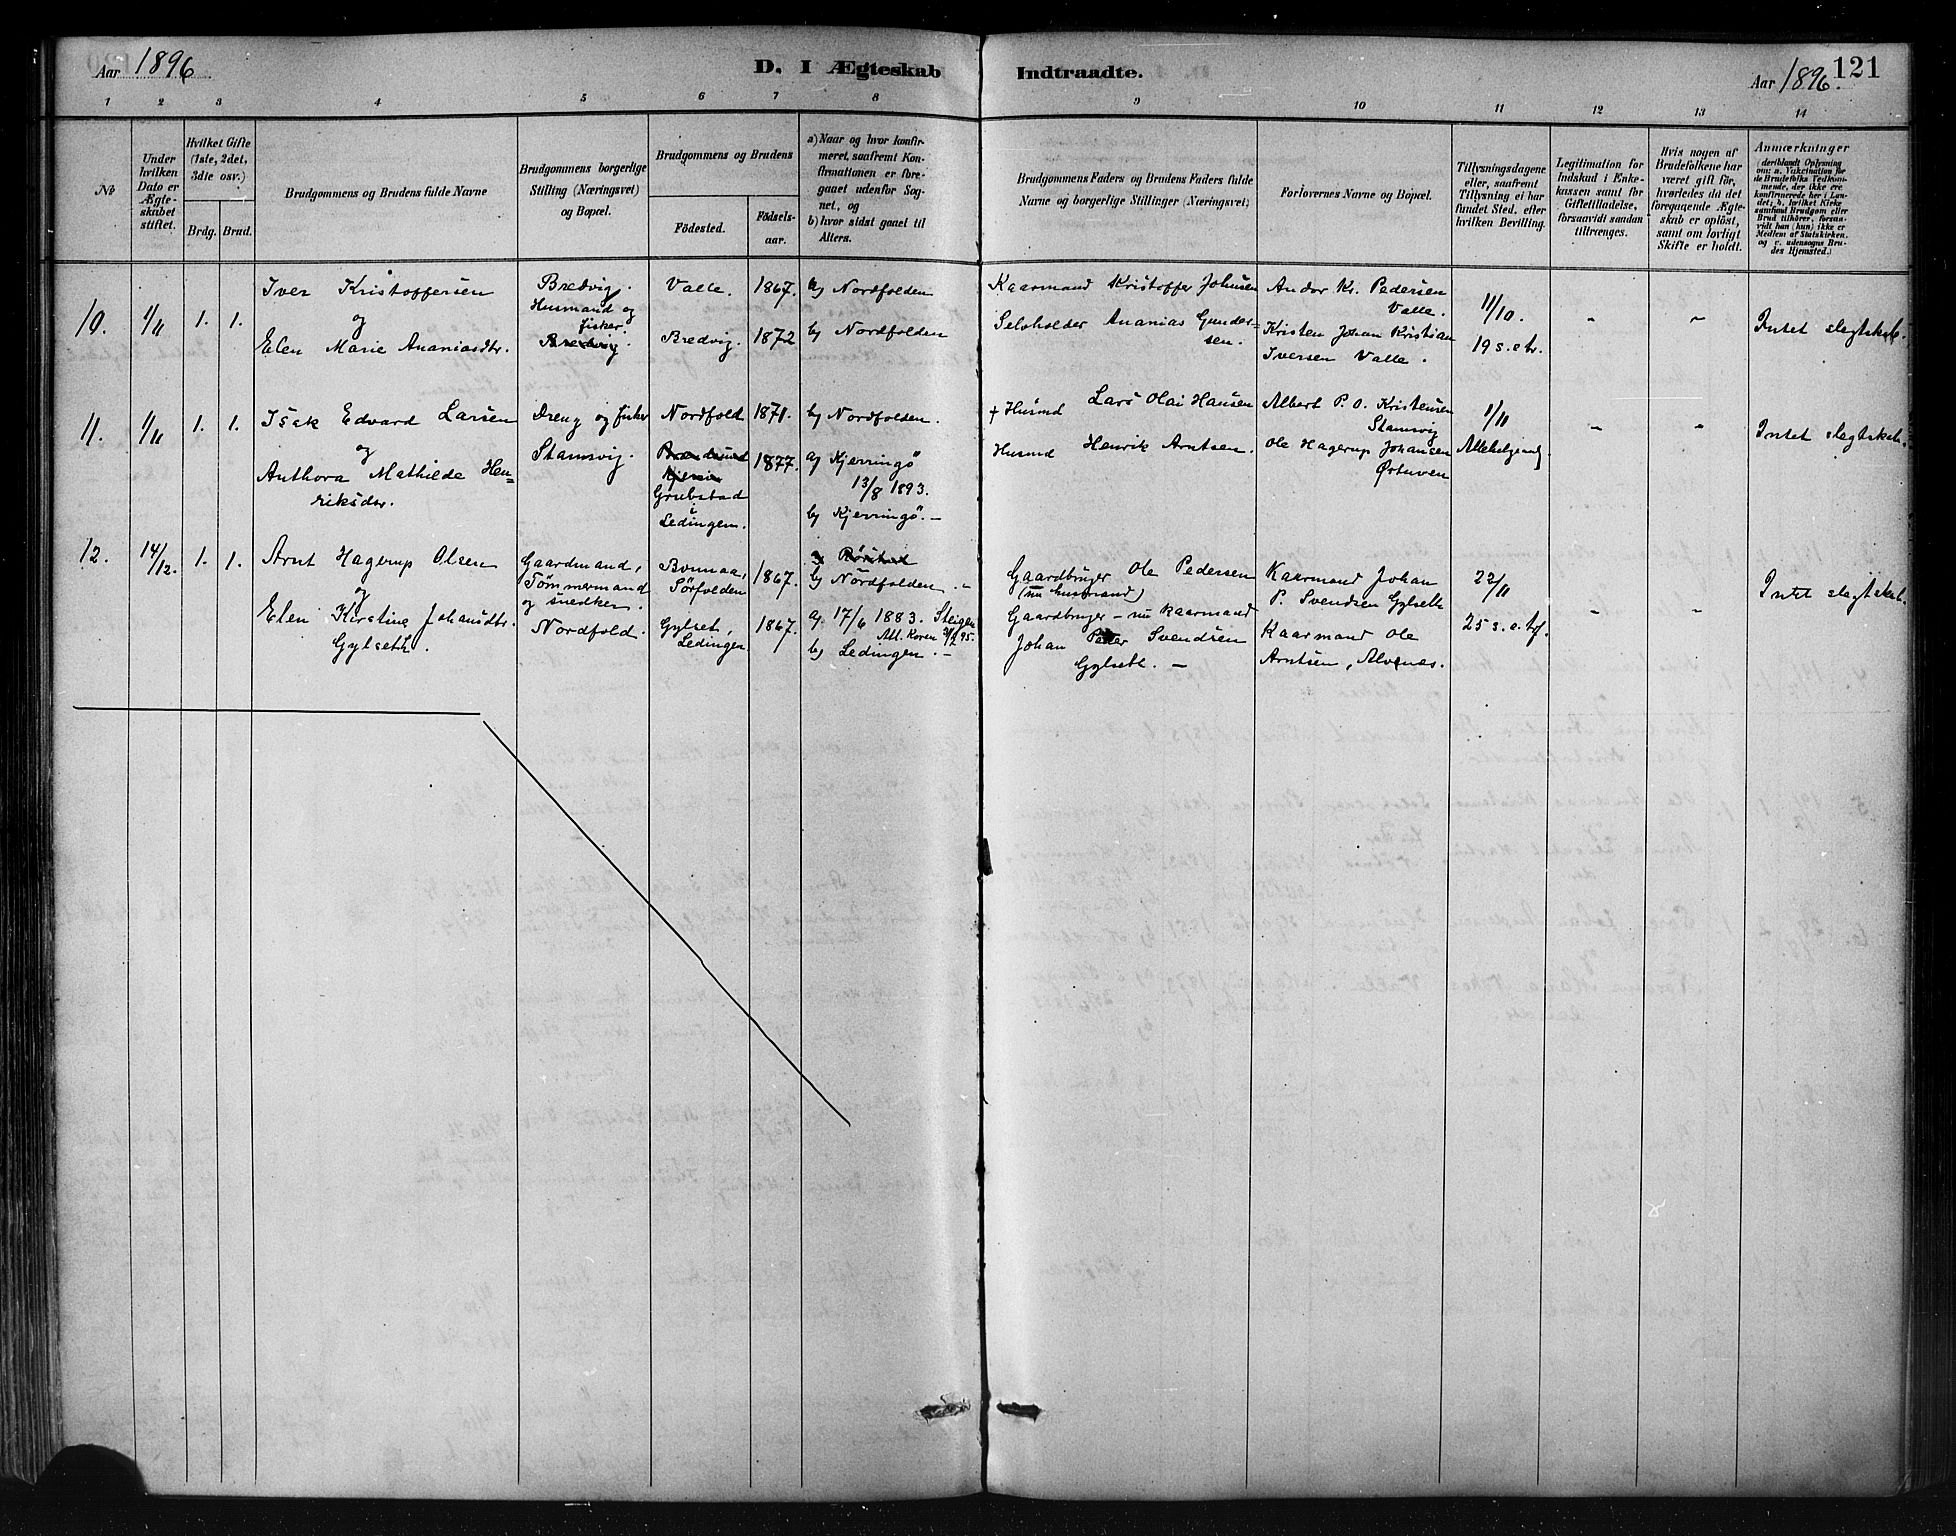 Aar 1896
D. I Ægteskab Indtraadte.
Aar 1896.
121
1 2 3 4 5 6 7 8 9 10 11 12 13 14
No
Under hvilken Dato er Ægteskabet stiftet.
Hvilket Gifte (1ste, 2det, 3die osv.)
Brdg. Brud.
Brudgommens og Brudens fulde Navne
Brudgommens borgerlige Stilling (Næringsvei) og Bopæl.
Brudgommens og Brudens
Fødested.
Fødselsaar.
a) Naar og hvor konfirmeret, saafremt Konfirmationen er foregaaet udenfor Sognet, og
b) hvor sidst gaaet til Alters.
Brudgommens Faders og Brudens Faders fulde Navne og borgerlige Stillinger (Næringsvei)
Forlovernes Navne og Bopæl.
Tillysningsdagene eller, saafremt Tillysning ei har fundet Sted, efter hvilken Bevilling.
Legitimation for Indskud i Enkekassen samt for Giftetilladelse, forsaavidt saadan tiltrænges.
Hvis nogen af Brudefolkene har været gift før, hvorledes da det foregaaende Ægteskab er opløst, samt om lovligt Skifte er holdt.
Anmærkninger
10. 1/11 1. 1.
Iver Kristoffersen
og
Elen Marie Ananiasdtr.
Bredvig.
Husmand og
fisker.
Bredvig
Valle. 1867.
Bredvig. 1872
a) Nordfolden
b) Nordfolden
Kaarmand Kristoffer Johnsen
Selvholder Ananias Gunder-
sen.
Andor Kr. Pedersen
Valle.
Kristen Johan Kristian
Iversen Valle.
11/10.
19 s. e tr.
" "
Intet slegtskab.
11. 1/11 1. 1.
Isak Edvard Larsen
og
Anthora Mathilde Hen=
riksdtr.
Dreng og fisker
Stamsvig.
Nordfold 1871.
1877.
Grubstad
Ledingem.
b) Nordfolden.
a) Kjerringö
13/8 1893.
b) Kjerringö. –
+ Husmd Lars Olai Hansen
Husmd Henrik Arntsen.
Albert P. O. Kristensen
Stamsvig
Ole Hagerup Johansen
Ørtuven
1/11
" "
Intet slegtskab.
12. 14/12. 1. 1.
Arnt Hagerup Olsen
og
Elen Kirstine Johansdtr.
Gylseth.
Gaardmand,
Tømmermand
og snedker.
Nordfold.
Bonnaa,
Sörfolden 1867.
Gylset,
Ledingen 1867.
b) Nordfolden. –
a) 17/6 1883. Steigen
b) Ledingen. –
Gaardbruger Ole Pedersen
(nu husmand)
Gaardbruger – nu kaarmand
Johan Peder Svendsen
Gylseth. –
Kaarmand Johan
P. Svendsen Gylseth
Kaarmand Ole
Arntsen, Alvenes.
22/11
25 s. e. trf.
" "
Intet slegtskab.